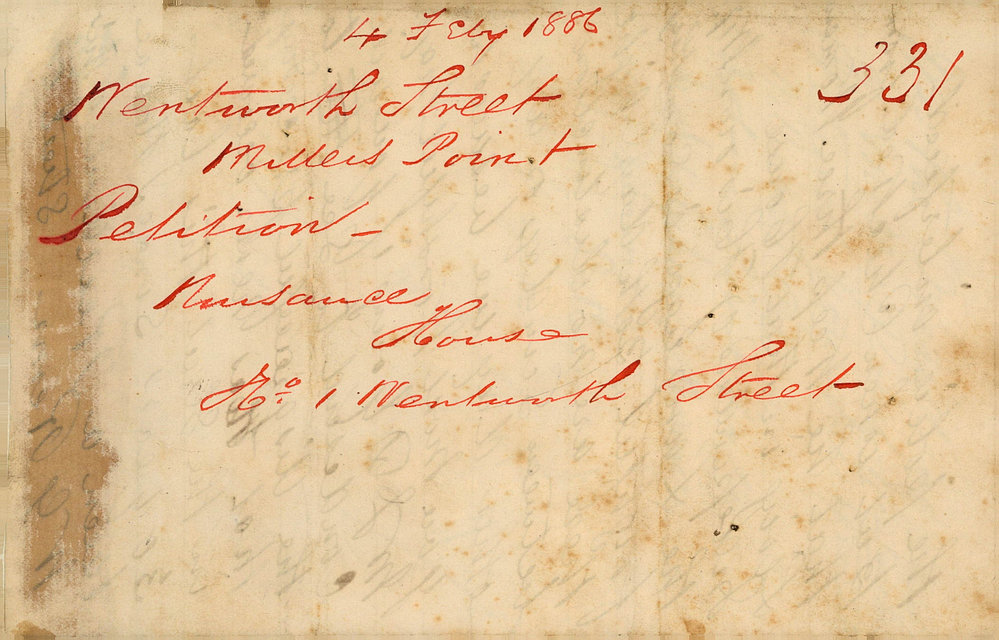 4 Feby 1886
331
Wentworth Street
Millers Point
Petition -
Nuisance
House
No. 1 Wentworth Street